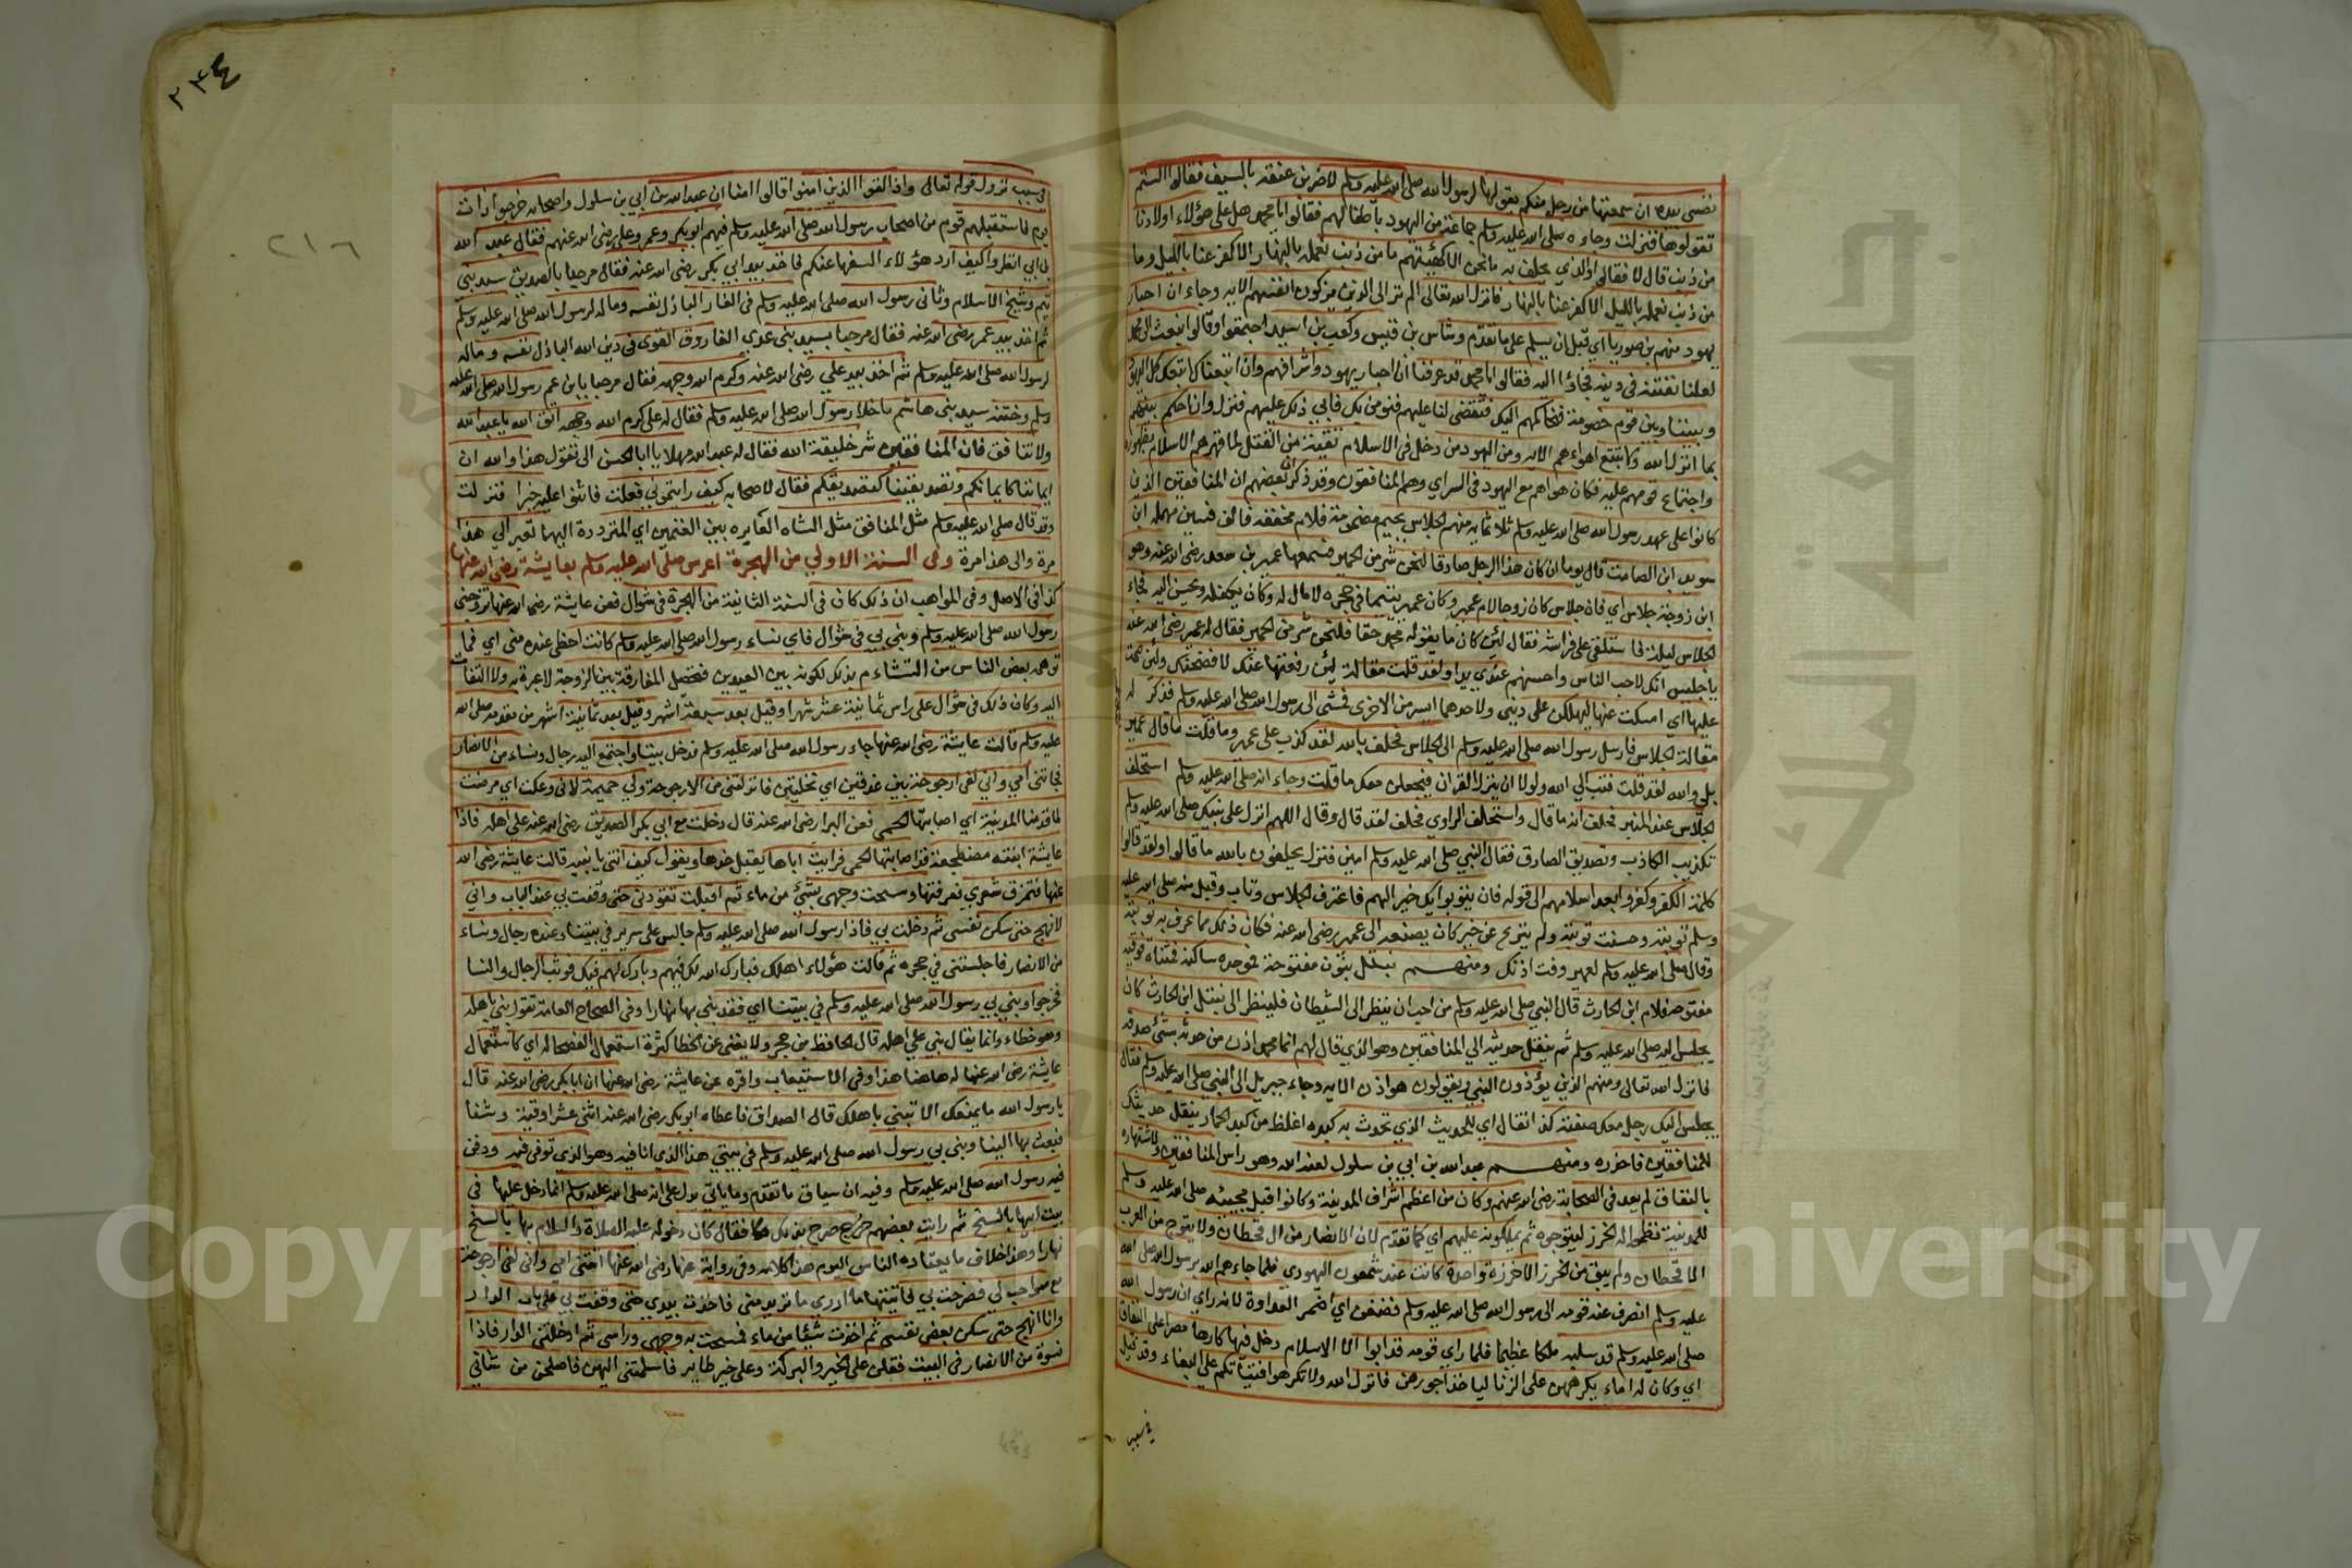 نفسي بيده ان سمعتها من رجل منكم يقولها لرسول الله صلى الله عليه وسلم لاضربن عنقه بالسيف فقالوا الستم
تقولوها فنزلت وجاءه صلى الله عليه وسلم جماعة من اليهود باطفالهم فقالوا يا محمد هل على هؤلاء اولادنا
من ذنب قال لا فقالوا والذي يحلف به ما نحن الا كهيئتهم ما من ذنب نعمله بالنهار الا كفر عنا بالليل وما
من ذنب نعمله بالليل الا كفر عنا بالنهار فانزل الله تعالى الم تر الى الذين يزكون انفسهم الايه وجاء ان احبار
يهود منهم بن صوريا اي قبل ان يسلم على ما تقدم وشاس بن قيس وكعب بن اسيد اجتمعوا وقالوا نبعث الى محمد
لعلنا نفتنه في دينه فجاؤا اليه فقالوا يا محمد قد عرفت انا احبار يهود واشرافهم وان اتبعناك اتبعك كل اليهود
وبيننا وبين قوم خصومة فنحاكمهم اليك فتقضي لنا عليهم فنومن بك فابي ذلك عليهم فنزل وان احكم بينهم
بما انزل الله ولا تتبع اهواءهم الايه ومن اليهود من دخل في الاسلام تقية من القتل لما قهرهم الاسلام بظهوره
واجتماع قومهم عليه فكان هواهم مع اليهود في السر اي وهم المنافقون وقد ذكر بعضهم ان المنافقين الذين
كانوا على عهد رسول الله صلى الله عليه وسلم ثلاثمايه منهم الجلاس بجيم مضمومة فلام مخففه فالف فسين مهمله ابن
سويد ابن الصامت قال يوما ان كان هذا الرجل صادقا لنحن شر من الحمير فسمعها عمير بن سعد رضي الله عنه وهو
ابن زوجة جلاس اي فان جلاس كان زوجا لام عمير وكان عمير يتيما في حجره لا مال له وكان يكفله ويحسن اليه فجاء
الجلاس ليلة فاستلقى على فراشه فقال لئن كان ما يقوله محمد حقا فلنحن شر من الحمير فقال له عمير رضي الله عنه
يا جليس انك لاحب الناس واحسنهم عندي يدا ولقد قلت مقالة لئن رفعتها عنك لافضحنك ولئن صمت
عليها اي امسكت عنها ليهلكن على ديني ولاحدهما ايسر من الاخرى فمشى الى رسول الله صلى الله عليه وسلم فذكر له
مقالة الجلاس فارسل رسول الله صلى الله عليه وسلم الى الجلاس فحلف بالله لقد كذب على عمير وما قلت ما قال عمير
بلى والله لقد قلت فتب الى الله ولولا ان ينزل القران فيجعلني معك ما قلت وجاء انه صلى الله عليه وسلم استحلف
الجلاس عند المنبر فحلف انه ما قال واستحلف الراوي فحلف لقد قال وقال اللهم انزل على نبيك صلى الله عليه وسلم
تكذيب الكاذب وتصديق الصادق فقال النبي صلى الله عليه وسلم امين فنزل يحلفون بالله ما قالوا ولقد قالوا
كلمة الكفر وكفروا بعد اسلامهم الى قوله فان يتوبوا يك خيرا لهم فاعترف الجلاس وتاب وقبل منه صلى الله عليه
وسلم توبته وحسنت توبته ولم ينزع عن خير كان يصنعه الى عمير رضي الله عنه فكان ذلك مما عرف به توبته
وقال صلى الله عليه وسلم لعمير وفت اذنك ومنهم نبتل بنون مفتوحة فموحده ساكنه فتتاة فوقيه
مفتوحه فلام ابن الحارث قال النبي صلى الله عليه وسلم من احب ان ينظر الى الشيطان فلينظر الى نبتل ابن الحارث كان
يجلس اليه صلى الله عليه وسلم ثم ينقل حديثه الي المنافقين وهو الذي قال لهم انما محمد اذن من حدثه شئ صدقه
فانزل الله تعالى ومنهم الذين يؤذون النبي ويقولون هو اذن الايه وجاء جبريل الى النبي صلى الله عليه وسلم فقال
يجلس اليك رجل معك صفته كذا نقال اي للحديث الذي تحدث به كبده اغلظ من كبد الحمار ينقل حديثك
للمنافقين فاحذره ومنهم عبد الله بن ابي بن سلول لعنه الله وهو راس المنافقين ولاشتهاره
بالنفاق لم يعد في الصحابة رضي الله عنهم وكان من اعظم اشراف المدينة وكانوا قبل مجيئه صلى الله عليه وسلم
للمدينة نظموا له الخرز ليتوجوه ثم يملكونه عليهم اي كما تقدم لان الانصار من ال قحطان ولا يتوج من العرب
الا قحطان ولم يبق من الخرز الا خرزة واحدة كانت عند شمعون اليهودي فلما جاءهم الله برسول الله صلى الله
عليه وسلم انصرف عنه قومه الى رسول الله صلى الله عليه وسلم فضغن اي اضمر العداوة لانه راى ان رسول الله
صلى الله عليه وسلم قد سلبه ملكا عظيما فلما راي قومه قد ابوا الا الاسلام دخل فيها كارها مصرا على النفاق
اي وكان له اماء يكرههن على الزنا لياخذ اجورهن فانزل الله ولا تكرهوا فتياتكم على البغاء وقد قيل
في سبب
٢٣٤
٢١٦
في سبب نزول قوله تعالى واذا لقوا الذين امنوا قالوا امنا ان عبد الله بن ابي بن سلول واصحابه خرجوا ذات
يوم فاستقبلهم قوم من اصحاب رسول الله صلى الله عليه وسلم فيهم ابو بكر وعمر وعلى رضي الله عنهم فقال عبد الله
بن ابي انظروا كيف ارد هؤلاء السفها عنكم فاخذ بيد ابي بكر رضي الله عنه فقال مرحبا بالصديق سيد بني
تيم وشيخ الاسلام وثاني رسول الله صلى الله عليه وسلم في الغار الباذل نفسه وماله لرسول الله صلى الله عليه وسلم
ثم اخذ بيد عمر رضي الله عنه فقال مرحبا بسيد بني عدي الفاروق القوى في دين الله الباذل نفسه وماله
لرسول الله صلى الله عليه وسلم ثم اخذ بيد علي رضي الله عنه وكرم الله وجهه فقال مرحبا بابن عم رسول الله صلى الله عليه
وسلم وختنه سيد بني هاشم ما خلا رسول الله صلى الله عليه وسلم فقال له على كرم الله وجهه اتق الله يا عبد الله
ولا تنافق فان المنافقين شر خليقة الله فقال له عبد الله مهلا يا ابا الحسن الى تقول هذا والله ان
ايماننا كايمانكم وتصديقنا كتصديقكم فقال لاصحابه كيف رايتموني فعلت فاثنوا عليه خيرا فنزلت
وقد قال صلى الله عليه وسلم مثل المنافق مثل الشاه العايره بين الغنمين اي المترددة اليهما تعير الي هذا
مرة والى هذا مرة وفى السنة الاولي من الهجرة اعرس صلى الله عليه وسلم بعايشة رضي الله عنها
كذا في الاصل وفي المواهب ان ذلك كان في السنة الثانية من الهجرة في شوال فعن عايشة رضي الله عنها تزوجني
رسول الله صلى الله عليه وسلم وبنى بي في شوال فاي نساء رسول الله صلى الله عليه وسلم كانت احظى عنده مني اي فما
توهمه بعض الناس من التشاءم بذلك لكونه بين العيدين فتحصل المفارقة بين الزوجة لا عبرة به ولا التفات
اليه وكان ذلك في شوال على راس ثمانية عشر شهرا وقيل بعد سبعة اشهر وقيل بعد ثمانية اشهر من مقدمه صلى الله
عليه وسلم قالت عايشة رضي الله عنها جاء رسول الله صلى الله عليه وسلم فدخل بيتنا واجتمع اليه رجال ونساء من الانصار
فجاءتني امي واني لفى ارجوحة بين عذقين اي نخلتين فانزلتني من الارجوحة ولي جميمة لاني وعكت اي مرضت
لما قدمنا المدينة اي اصابتها الحمى فعن البرا رضي الله عنه قال دخلت مع ابي بكر الصديق رضي الله عنه على اهله فاذا
عايشة ابنته مضطجعة قد اصابتها الحمى فرايت اباها يقبل خدها ويقول كيف انتي يا بنيه قالت عايشة رضي الله
عنها فتمزق شعري ففرقتها ومسحت وجهي بشئ من ماء ثم اقبلت تقودني حتى وقفت بي عند الباب واني
لانهج حتى سكن نفسي ثم دخلت بي فاذا رسول الله صلى الله عليه وسلم جالس على سرير في بيتنا وعنده رجال ونساء
من الانصار فاجلستني في حجره ثم قالت هؤلاء اهلك فبارك الله لك فيهم وبارك لهم فيك فوثب الرجال والنسا
فخرجوا وبنى بي رسول الله صلى الله عليه وسلم في بيتنا اي فقد بنى بها نهارا وفي الصحاح العامة تقول بنى باهله
وهو خطاء وانما يقال بنى على اهله قال الحافظ بن حجر ولا يغنى عن الخطا كثرة استعمال الفصحا له اي كاستعمال
عايشة رضي الله عنها له هاهنا هذا وفي الاستيعاب واقره عن عايشة رضي الله عنها ان ابا بكر رضي الله عنه قال
يا رسول الله ما يمنعك الا تبتني باهلك قال الصداق فاعطاه ابو بكر رضي الله عنه اثنى عشر اوقية ونشا
فبعث بها الينا وبنى بي رسول الله صلى الله عليه وسلم في بيتي هذا الذي انا فيه وهو الذي توفى فيه ودفن
فيه رسول الله صلى الله عليه وسلم وفيه ان سياق ما تقدم وما ياتي يدل على انه صلى الله عليه وسلم انما دخل عليها في
بيت ابيها بالسنح ثم رايت بعضهم صرح بذلك فقال كان دخوله عليه الصلاة والسلام بها بالسنح
نهارا وهذا خلاف ما يعتاده الناس اليوم هذا كلامه وفي رواية عنها رضي الله عنها اتتني امي واني لفى ارجوحة
مع صواحب لي فصرخت بي فاتيتها ما ادري ما تريد مني فاخذت بيدي حتى وقفت بي على باب الدار
وانا انهج حتى سكن بعض نفسي ثم اخذت شيئا من ماء فمسحت به وجهي وراسي ثم ادخلتني الدار فاذا
نسوة من الانصار في البيت فقلن على الخير والبركة وعلى خير طاير فاسلمتني اليهن فاصلحن من شاني